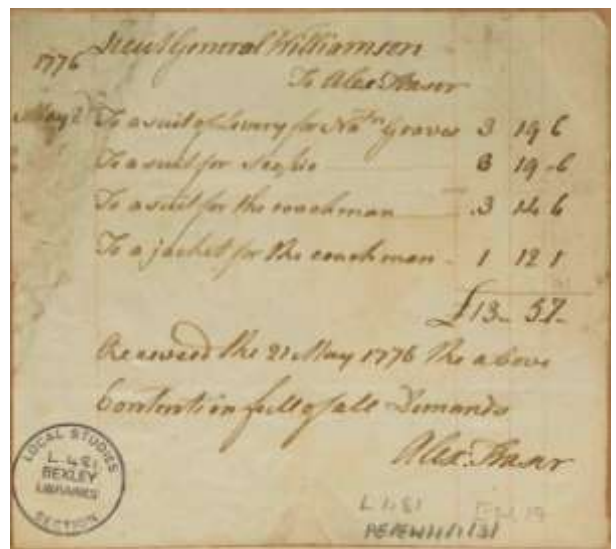 Lieut General Williamson
1776
To Alex: Fraser
May 2 To a suit of Livery for Natn Graves 3 19 6
To a suit for Scipio 3 19 -6
To a suit for the coachman 3 14 6
To a jacket for the coachman - 1 12 1
£13- 5 7-
Received the 21 May 1776 the above
Contents in full of all Demands
Alex: Fraser
LOCAL STUDIES
L.481
BEXLEY
LIBRARIES
SECTION
L 481
PEPEW1/1/1/31